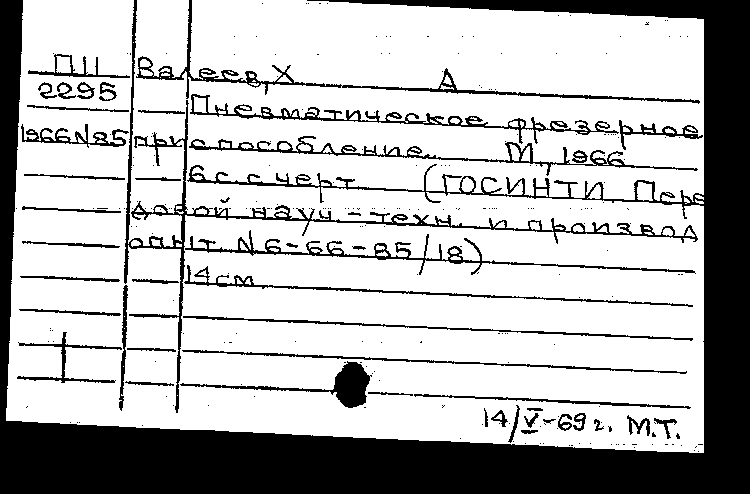 П11 Валеев, Х А
2295 Пневматическое фрезерное
1966N85 приспособление. М, 1966
6 с. с черт (ГОСИНТИ Пере
довой науч-техн. и производ
опыт. N 6-66-85/18)
14 см
14/V-69 г. М.Т.